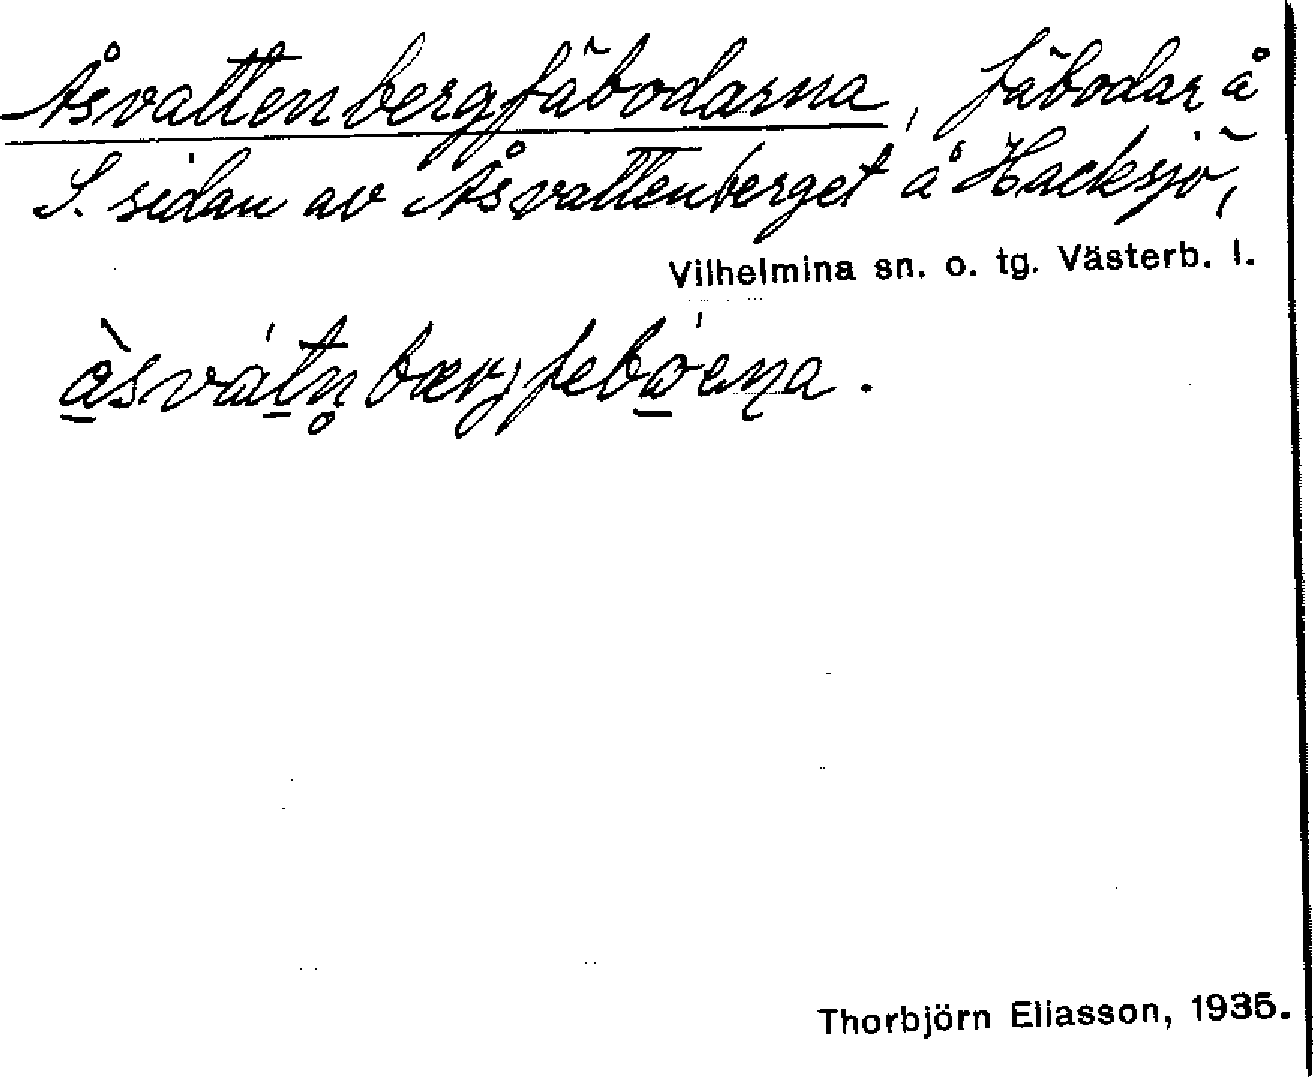 Åsvattenbergfäbodarna, fäbodar å
S. sidan av Åsvattenberget å Hacksjö,
Vilhelmina sn. o. tg. Västerb. l.
Thorbjörn Eliasson, 1935.